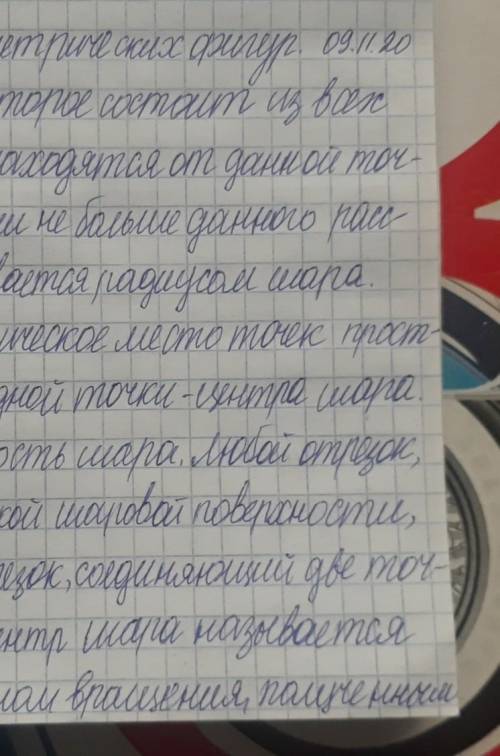 етрических фигур. 09.11.20
торое состоит из всех
аходятся от данной точ-
ии не больше данного расс-
вается радиусом шара.
ическое место точек прост-
дной точки - центра шара.
ость шара. Любой отрезок,
кой шаровой поверхности,
резок, соединяющий две точ-
ентр шара называется
лом вращения, полученным